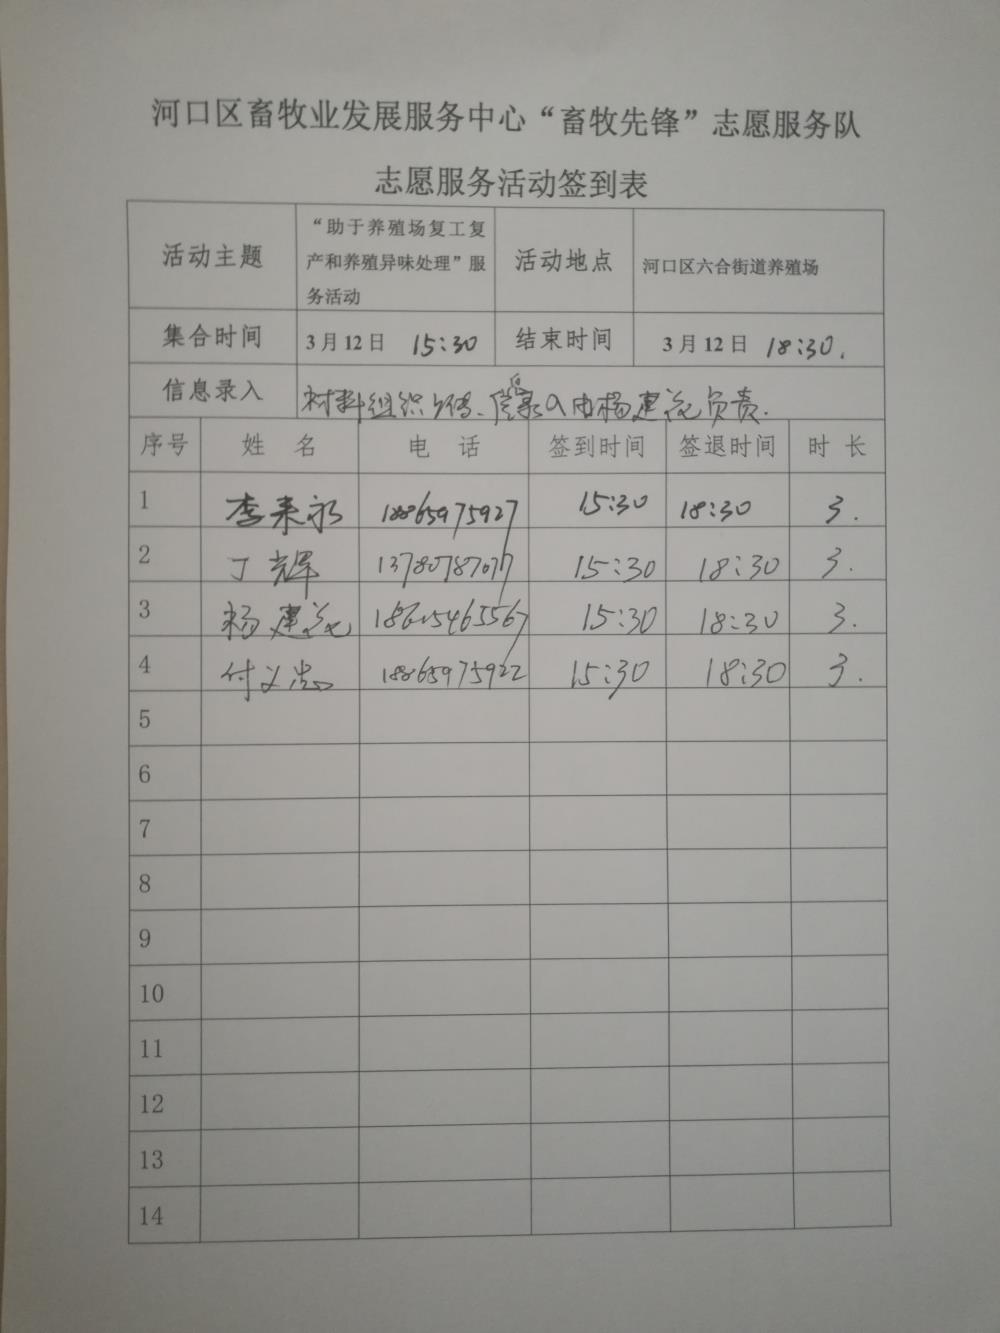 河口区畜牧业发展服务中心“畜牧先锋”志愿服务队
志愿服务活动签到表
活动主题 “助于养殖场复工复产和养殖异味处理”服务活动 活动地点 河口区六合街道养殖场
集合时间 3月12日 15:30 结束时间 3月12日 18:30.
信息录入 材料组织上传、信息录入由杨建花负责.
序号 姓 名 电 话 签到时间 签退时间 时 长
1 李来永 18865975927 15:30 18:30 3.
2 丁辉 13780787077 15:30 18:30 3.
3 杨建花 18615465567 15:30 18:30 3.
4 付义忠 18865975922 15:30 18:30 3.
5
6
7
8
9
10
11
12
13
14